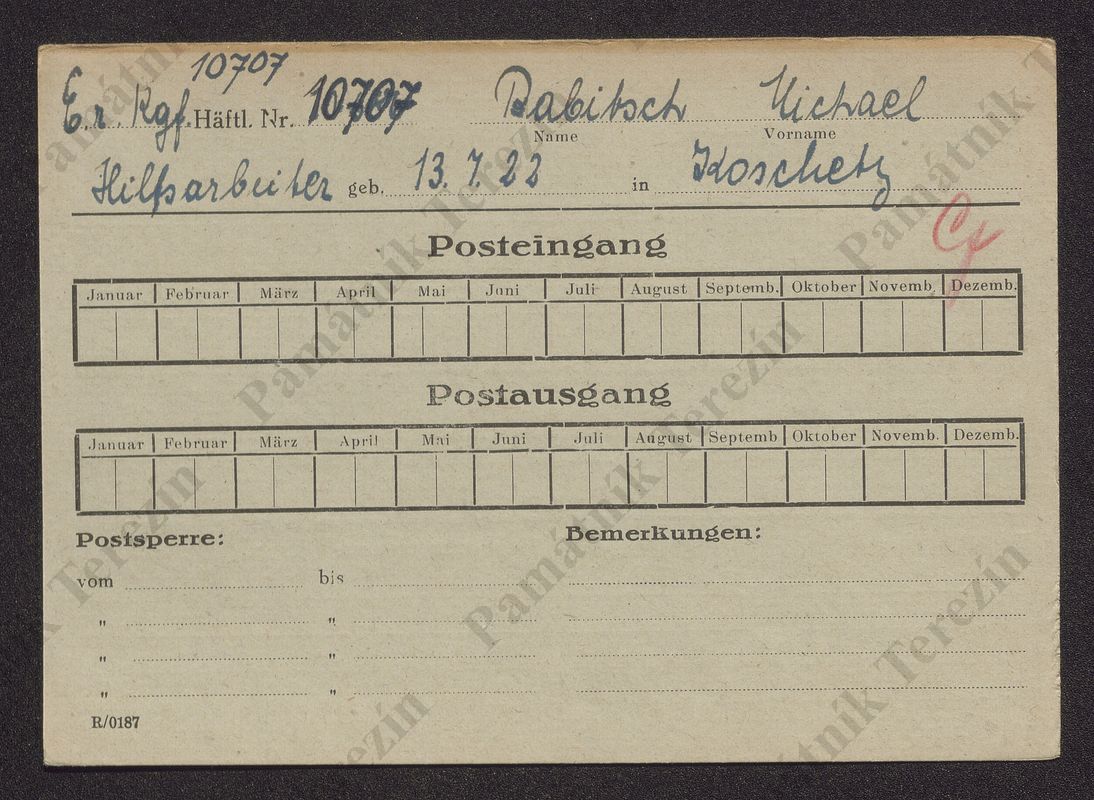 10707
Er. Rgf. Häftl. Nr. 10707 Babitsch Michael
Name Vorname
Hilfsarbeiter geb. 13.7.22 in Koschetz
Posteingang
Januar Februar März April Mai Juni Juli August Septemb. Oktober Novemb. Dezemb.
Postausgang
Januar Februar März April Mai Juni Juli August Septemb Oktober Novemb. Dezemb.
Postsperre: Bemerkungen:
vom bis
" "
" "
" "
R/0187
Památník Terezín